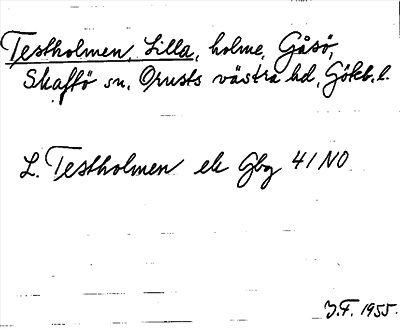 Testholmen, Lilla, holme, Gåsö,
Skaftö sn, Orusts västra hd, Göteb. l.
L. Testholmen ek Gbg 41 NO
J.F. 1955.